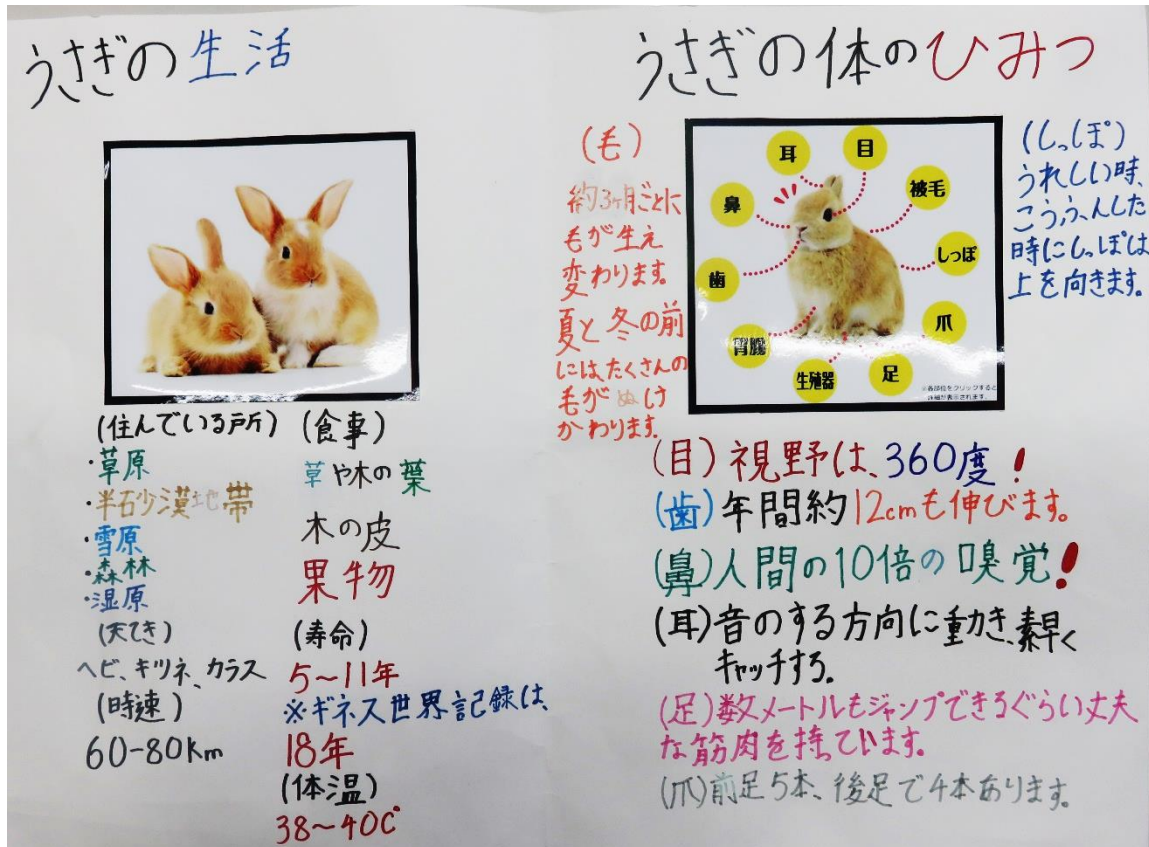 うさぎの生活
(住んでいる所)
・草原
・半砂漠地帯
・雪原
・森林
・湿原
(天てき)
ヘビ、キツネ、カラス
(時速)
60-80km
(食事)
草や木の葉
木の皮
果物
(寿命)
5～11年
※ギネス世界記録は、
18年
(体温)
38～40℃
うさぎの体のひみつ
(毛)
約3ヶ月ごとに
毛が生え
変わります。
夏と冬の前
には、たくさんの
毛がぬけ
かわります。
耳
目
鼻
被毛
歯
しっぽ
胃腸
爪
生殖器
足
※各部位をクリックすると
詳細が表示されます。
(しっぽ)
うれしい時、
こうふんした
時にしっぽは
上を向きます。
(目)視野は、360度!
(歯)年間約12cmも伸びます。
(鼻)人間の10倍の嗅覚!
(耳)音のする方向に動き、素早く
キャッチする。
(足)数メートルもジャンプできるぐらい丈夫
な筋肉を持っています。
(爪)前足5本、後足で4本あります。